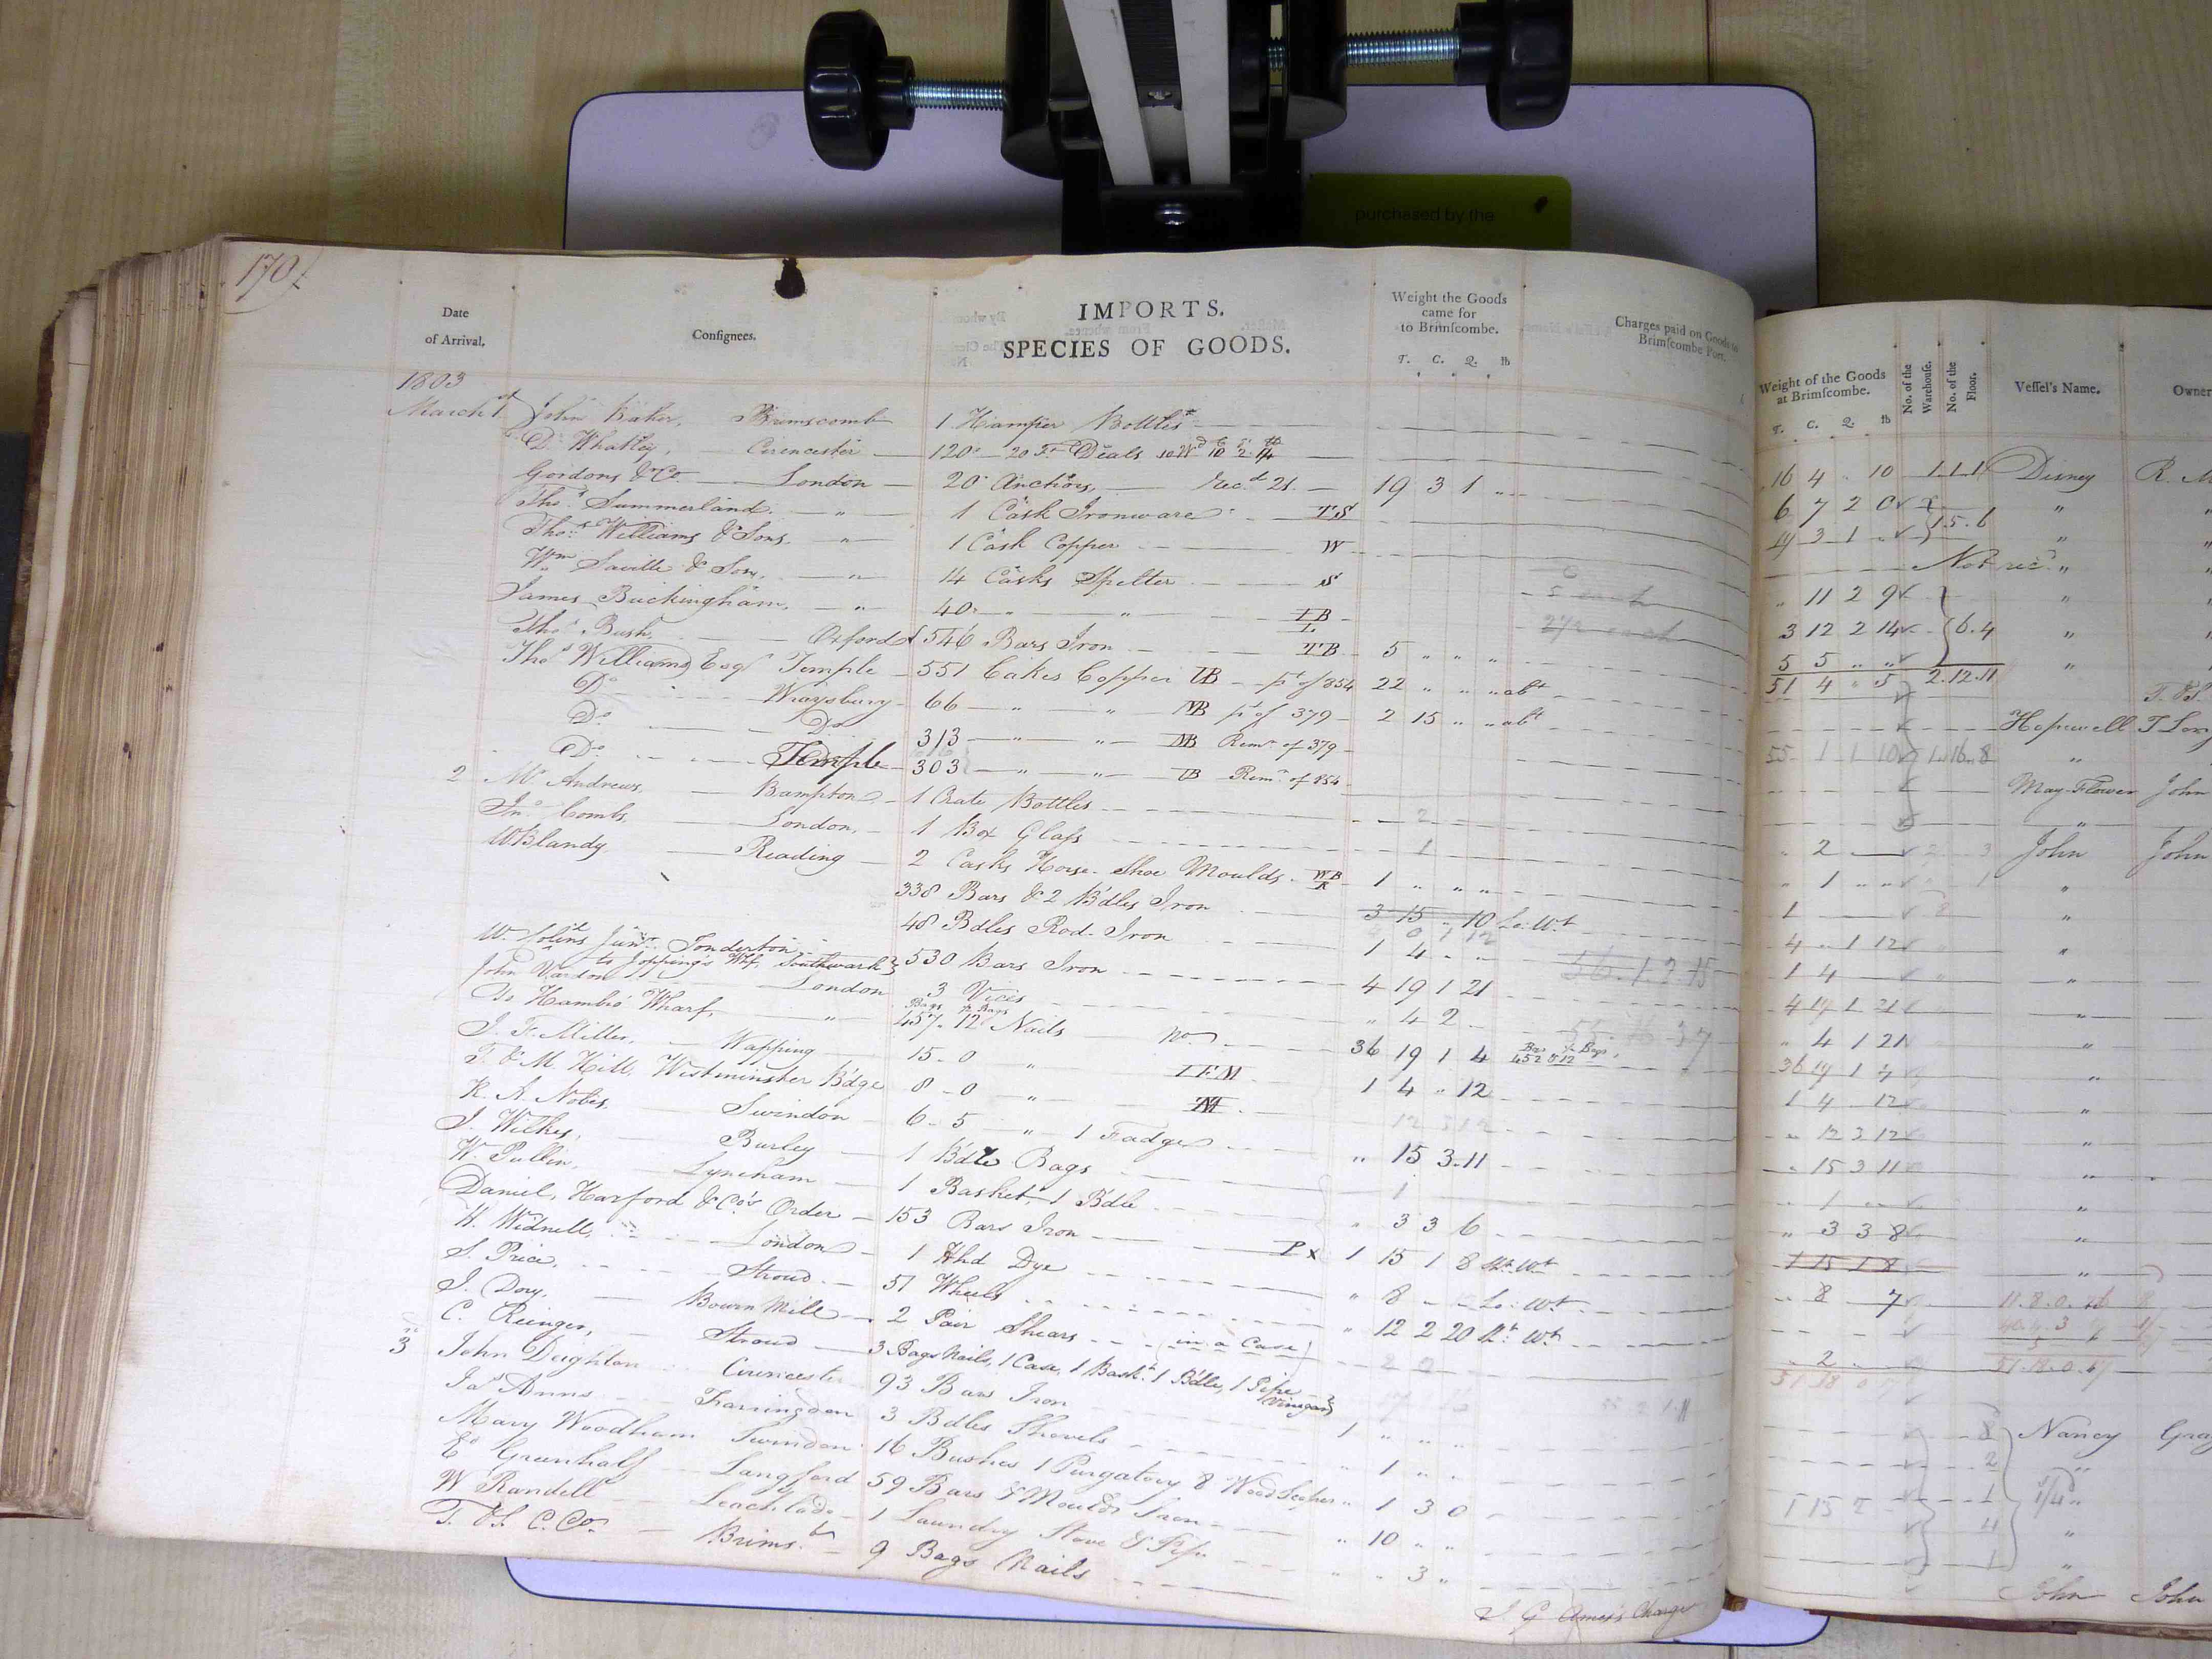 purchased by the
170
Date of Arrival.
Consignees.
IMPORTS.
SPECIES OF GOODS.
Weight the Goods came for to Brimscombe.
T. C. Q. lb
Charges paid on Goods to Brimscombe Port.
1803
March 1st John Baker, Brimscomb 1 Hamper Bottles
D. Whatley, Cirencester 120 - 20 Ft Deals
Gordons & Co London 20 Anchors, Rec.d 21. 19 3 1 "
Thos. Summerland " 1 Cask Ironware TS
Thos. Williams & Sons " 1 Cask Copper W
Wm Saville & Son, " 14 Casks Spelter S
James Buckingham, " 40 " " 5 each
Thos. Bush, Oxford 546 Bars Iron TB 5 " " "
Thos Williams Esqr Temple 551 Cakes Copper TB pt of 854 22 " " " abt
Do Wraysbury 66 " " MB pt of 379 2 15 " " abt
Do Do 313 " " MB Remr of 379
Do Temple 303 " " TB Remr of 854
2 Mr Andrews, Bampton 1 Crate Bottles 2
Jno Combs, London, 1 Box Glass 1
W Blandy Reading 2 Casks Horse-Shoe Moulds WB R 1 " " "
338 Bars & 2 Bdles Iron 3 15 " 10 Lo: Wt
48 Bdles Rod-Iron 1 4 " "
W. Colins Junr. Tonderton to Topping's Whf, Southwark 530 Bars Iron 4 19 1 21
John Vardon London 3 Vices " 4 2
To Hambro' Wharf, " 457. 12 Nails No. 36 19 1 4
J. F. Miller, Wapping 15-0 " IFM 1 4 " 12
T. & M. Hill, Westminster Bdge 8-0 " 12 3 12
R. A. Nobis, Swindon 6-5 " 1 Fadge " 15 3 11
J. Wilkes, Burley 1 Bdle Bags 1
W. Pullin, Lyneham 1 Basket, 1 Bdle " 3 3 6
Daniel, Harford & Co's Order 153 Bars Iron Px 1 15 1 8
H. Widnell, London 1 Hhd Dye " 8 Lo: Wt
S. Price, Stroud 57 Wheels " 12 2 20
J. Dory, Bourn Mill 2 Pair Shears (in a Case)
C. Reinger, Stroud 3 Bags Nails, 1 Case, 1 Baskt 1 Bdle, 1 Pipe Vinegar
3 John Deighton Cirencester 93 Bars Iron 1 " " "
Jas Anns Farringdon 3 Bdles Shovels " 1 " "
Mary Woodham Swindon 16 Bushes 1 Purgatory 8 " 1 3 0
Ed Greenhalf Langford 59 Bars & Moulds Iron " 10 " "
W Randell Leachlade 1 Laundry Stove & Pipe " " 3 "
T. & S. C. Co. Brims. 9 Bags Nails
Charge
Weight of the Goods at Brimscombe.
T. C. Q. lb
No. of the Warehouse.
No. of the Floor.
Vessel's Name.
Owner
16 4 " 10 1.1.1 Disney R. M
6 7 2 0 "
19 3 1 " 1.5.6 "
Not recd "
" 11 2 9 "
3 12 2 14 6.4 "
5 5 " " "
51 4 " 5 2.12.11 T. & S.
Hopewell T Lon
55 1 1 10 1.16.8 "
May-Flower John
"
" 2 John John
" 1 " " "
1 "
4 " 1 12 "
1 4 "
4 19 1 21 "
" 4 1 21 "
36 19 1 4 "
1 4 " 12 "
" 12 3 12 "
" 15 3 11 "
" 1 "
" 3 3 8 "
1 15 1 8 "
" 8 " 7
" 2
8 Nancy Gra
2
1
4 "
1 "
John John